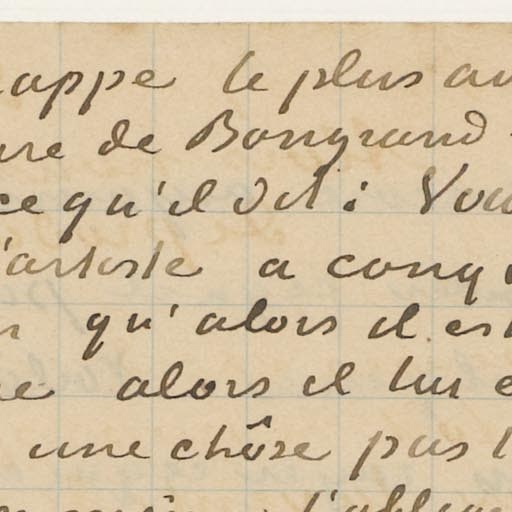 appe le plus au
ure de Bongrand
ce qu'il dit : Vou
l'artiste a conq
qu'alors il est
ne alors il lui e
une chôse pas l